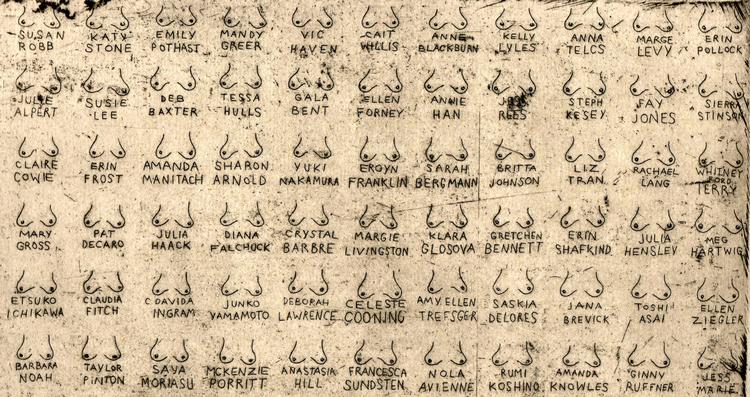 SUSAN ROBB
KATY STONE
EMILY POTHAST
MANDY GREER
VIC HAVEN
CAIT WILLIS
ANNE BLACKBURN
KELLY LYLES
ANNA TELCS
MARGE LEVY
ERIN POLLOCK
JULIE ALPERT
SUSIE LEE
DEB BAXTER
TESSA HULLS
GALA BENT
ELLEN FORNEY
ANNIE HAN
REES
STEPH KESEY
FAY JONES
SIERRA STINSON
CLAIRE COWIE
ERIN FROST
AMANDA MANITACH
SHARON ARNOLD
YUKI NAKAMURA
EROYN FRANKLIN
SARAH BERGMANN
BRITTA JOHNSON
LIZ TRAN
RACHAEL LANG
WHITNEY FORD TERRY
MARY GROSS
PAT DECARO
JULIA HAACK
DIANA FALCHUCK
CRYSTAL BARBRE
MARGIE LIVINGSTON
KLARA GLOSOVA
GRETCHEN BENNETT
ERIN SHAFKIND
JULIA HENSLEY
MEG HARTWIG
ETSUKO ICHIKAWA
CLAUDIA FITCH
C DAVIDA INGRAM
JUNKO YAMAMOTO
DEBORAH LAWRENCE
CELESTE COONING
AMY ELLEN TREFSGER
SASKIA DELORES
JANA BREVICK
TOSHI ASAI
ELLEN ZIEGLER
BARBARA NOAH
TAYLOR PINTON
SAYA MORIASU
MCKENZIE PORRITT
ANASTASIA HILL
FRANCESCA SUNDSTEN
NOLA AVIENNE
RUMI KOSHINO
AMANDA KNOWLES
GINNY RUFFNER
JESS MARIE